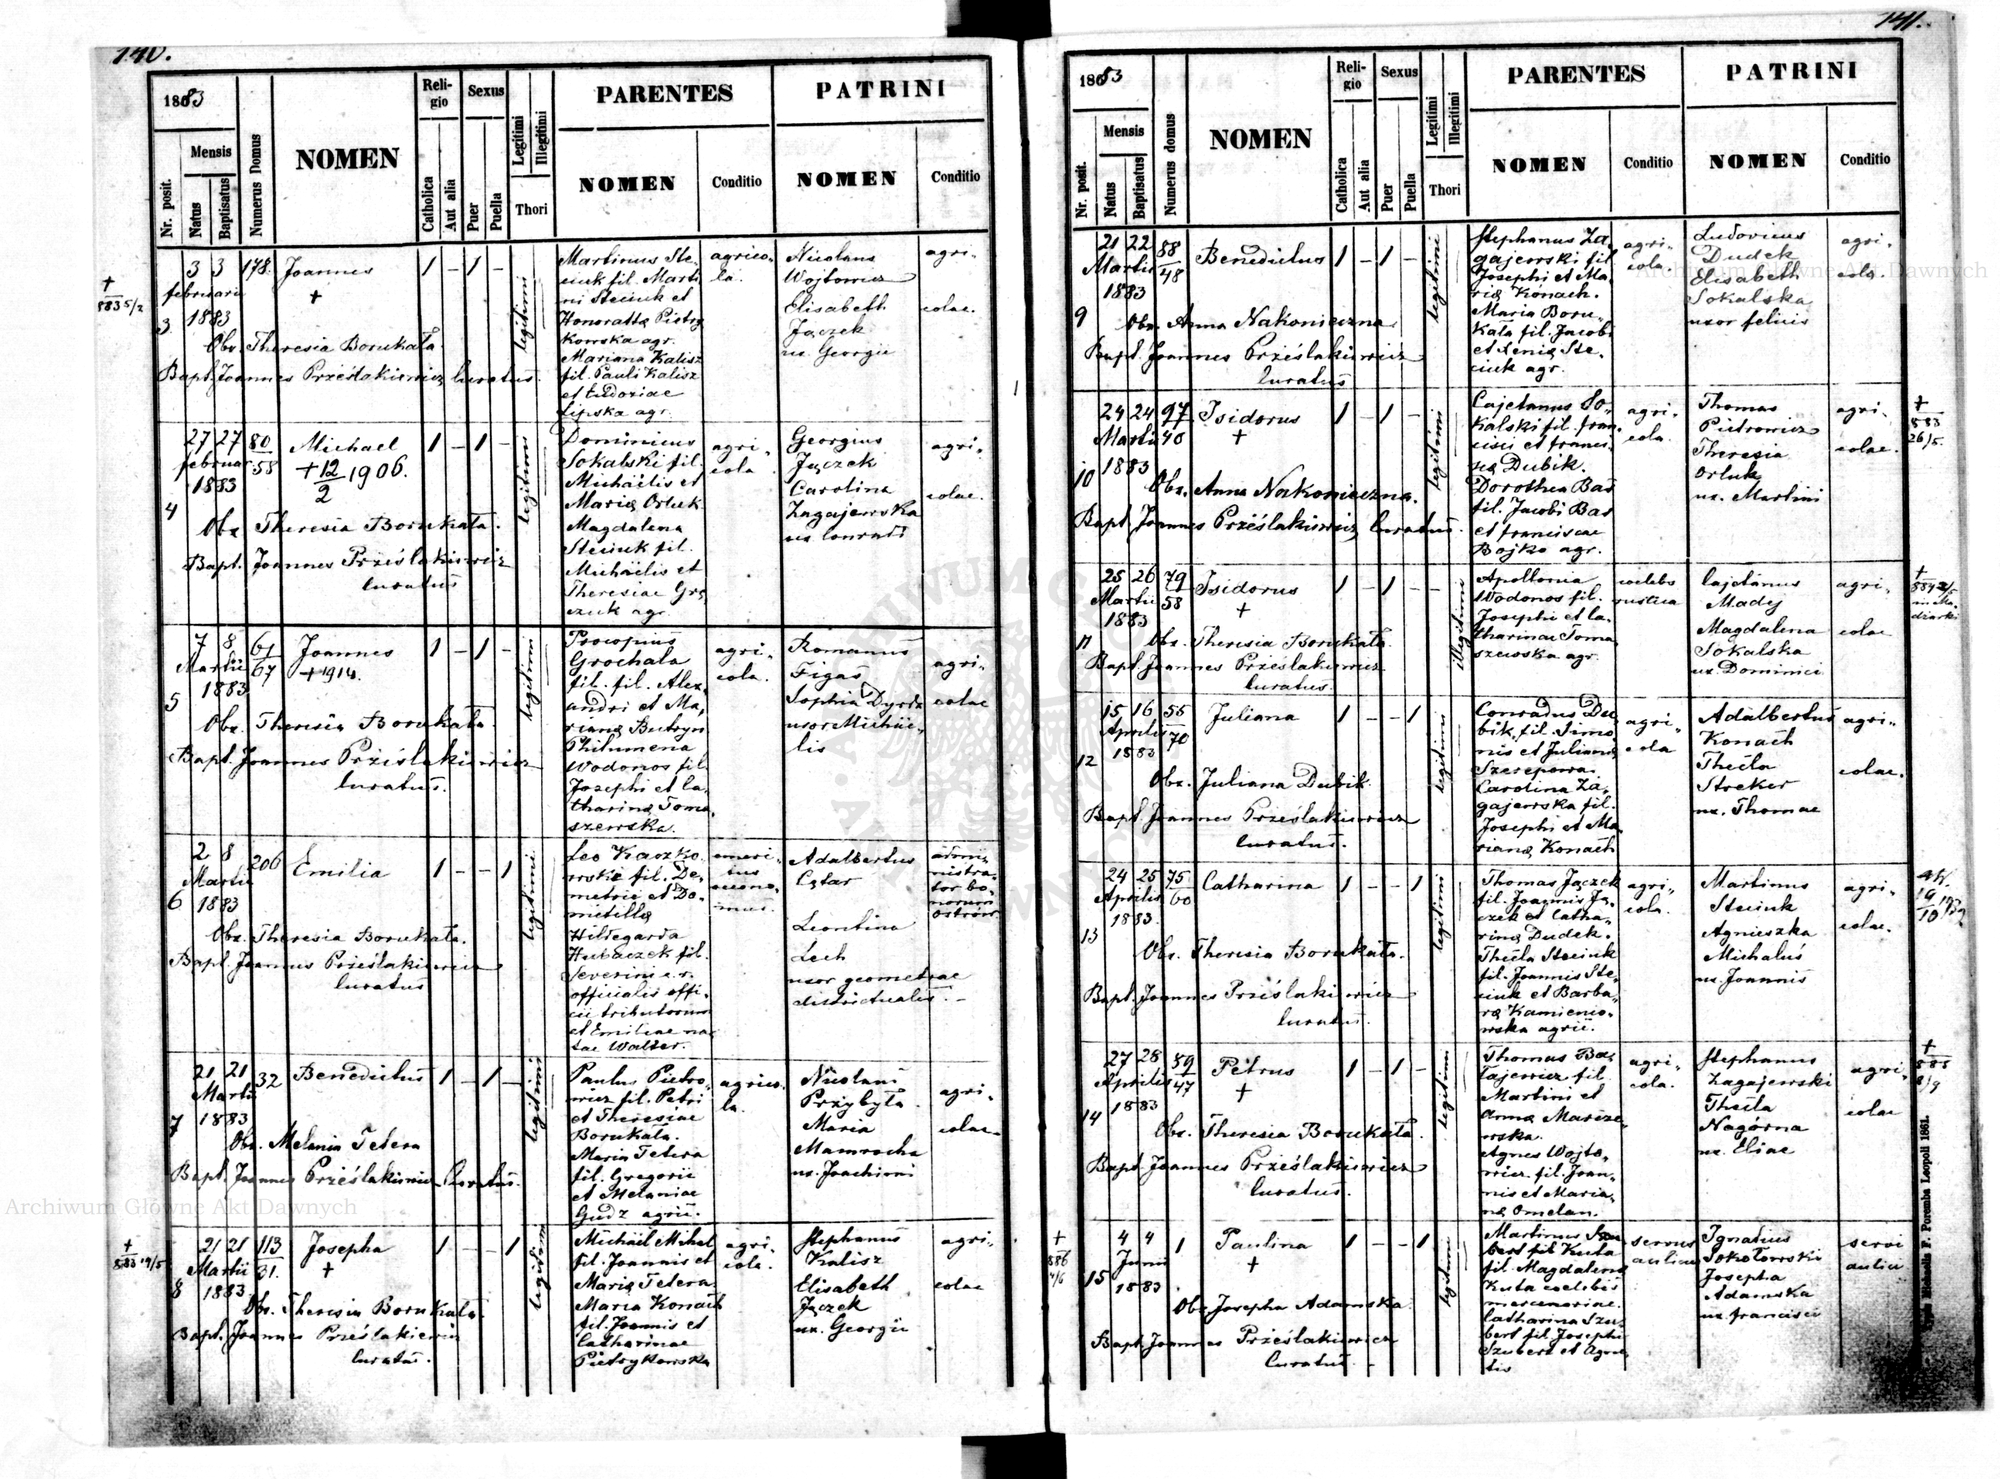 140.
1883
Nr. posit.
Mensis
Natus
Baptisatus
Numerus Domus
NOMEN
Religio
Catholica
Aut alia
Sexus
Puer
Puella
Legitimi
Illegitimi
Thori
PARENTES
NOMEN
Conditio
PATRINI
NOMEN
Conditio
3 3 178. Joannes 1 - 1 -
februarii +
1883
3
Obs. Theresia Borukała.
Bapt. Joannes Prześlakiewicz Curatus.
legitimi
Martinus Ste-
ciuk fil. Marti
ni Steciuk et
Honoratta Pietry
kowska agr.
Mariana Kalisz
fil. Pauli Kalisz
et Eudoxiae
Lipska agr.
agrico-
la.
Nicolaus
Wojtowicz
Elisabeth
Jączek
ux. Georgii
agri-
colae.
+
883 5/2
27 27 80 Michael 1 - 1 -
58
februar +12/2 1906.
1883
4
Obs. Theresia Borukała.
Bapt. Joannes Prześlakiewicz
Curatus
legitimi
Dominicus
Sokalski fil.
Michäelis et
Maria Orluk
Magdalena
Steciuk fil.
Michäelis et
Theresiae Grą
czuk agr.
agri-
cola
Georgius
Jączek
Carolina
Zagajewska
ux. Conradi
agri-
colae.
7 8 61 Joannes 1 - 1 -
67
Martii +1914.
1883
5
Obs. Theresia Borukała.
Bapt. Joannes Prześlakiewicz
Curatus.
legitimi
Procopius
Grochala
fil. fil. Alex-
andri et Ma-
riana Butryn
Philumena
Wodonos fil.
Josephi et Ca-
tharina Toma
szewska.
agri-
cola.
Romanus
Figas
Sophia Dyrda
uxor Michäe-
lis
agri-
colae
2 8 206 Emilia 1 - - 1
Martii
6 1883
Obs. Theresia Borukała.
Bapt. Joannes Prześlakiewicz
Curatus
legitimi
Leo Kaczko
wski fil. De-
metrii et Do-
mitilla
Hildegarda
Hubaczek fil.
Severini c.r.
officialis offi-
cii tributorum
et Emiliae na-
tae Walter.
emeri-
tus
oecono-
mus.
Adalbertus
Cytar
Leontina
Lech
uxor geometrae
districtualis. -
admi-
nistra-
tor bo-
norum
21 21 32 Benedictus 1 - 1 -
Martii
7 1883
Obs. Melania Tetera
Bapt. Joannes Prześlakiewicz Curatus.
legitimi
Paulus Pietro-
wicz fil. Petri
et Theresiae
Borukała.
Maria Tetera
fil. Gregorii
et Melaniae
Gudz agrii.
agrico-
la.
Nicolaus
Przybyła
Maria
Mamrocha
ux. Joachimi
agri-
colae.
21 21 113 Josepha 1 - - 1
31.
Martii +
8 1883
Obs. Theresia Borukała.
Bapt. Joannes Prześlakiewicz
Curatus.
legitimi
Michäel Mihal
fil. Joannis et
Maria Tetera.
Maria Konach
fil. Joannis et
Catharinae
Pietrykowska
agri-
cola.
Stephanus
Kalisz
Elisabeth
Jączek
ux. Georgii
agri-
colae
+
883 19/5
141.
1883
Nr. posit.
Mensis
Natus
Baptisatus
Numerus domus
NOMEN
Religio
Catholica
Aut alia
Sexus
Puer
Puella
Legitimi
Illegitimi
Thori
PARENTES
NOMEN
Conditio
PATRINI
NOMEN
Conditio
21 22 88 Benedictus 1 - 1 -
48
Martii
1883
9 Obs. Anna Nakonieczna.
Bapt. Joannes Prześlakiewicz
Curatus
legitimi
Stephanus Za-
gajewski fil.
Josephi et Ma-
ria Konach.
Maria Boru-
kała fil. Jacobi
et Xenia Ste-
ciuk agr.
agri-
cola
Ludovicus
Dudek
Elisabeth
Sokalska
uxor felicis
agri-
colae.
24 24 97 Isidorus 1 - 1 -
40
Martii +
1883
10 Obs. Anna Nakonieczna.
Bapt. Joannes Prześlakiewicz Curatus.
legitimi
Cajetanus So-
kalski fil. fran-
cisci et francis-
ca Dubik.
Dorothea Bas
fil. Jacobi Bas
et franciscae
Bojko agr.
agri-
cola.
Thomas
Pietrowicz
Theresia
Orluk
ux. Martini
agri-
colae.
+
883
26/5.
25 26 79 Isidorus 1 - 1 -
58
Martii +
1883
11 Obs. Theresia Borukała.
Bapt. Joannes Prześlakiewicz
Curatus.
illegitimi
Apollonia
Wodonos fil.
Josephi et Ca-
tharinae Toma
szewska agr.
coelebs
rustica
Cajetanus
Madej
Magdalena
Sokalska
ux. Dominici
agri-
colae
+
15 16 55 Juliana 1 - - 1
70
Aprilis
1883
12
Obs. Juliana Dubik.
Bapt. Joannes Prześlakiewicz
Curatus.
legitimi
Conradus Du-
bik, fil. Simo-
nis et Juliana
Szerepowa.
Carolina Za-
gajewska fil.
Josephi et Ma-
riana Konach
agri-
cola
Adalbertus
Konach
Thecla
Streker
ux. Thomae
agri-
colae.
24 25 75 Catharina 1 - - 1
60
Aprilis
1883.
13
Obs. Theresia Borukała.
Bapt. Joannes Prześlakiewicz
Curatus.
legitimi
Thomas Jączek
fil. Joannis Ją-
czek et Catha-
rina Dudek.
Thecla Steciuk
fil. Joannis Ste-
ciuk et Barba-
ra Kamienio-
wska agrii.
agri-
cola.
Martinus
Steciuk
Agnieszka
Michaluś
ux. Joannis
agri-
colae.
27 28 89 Petrus 1 - 1 -
47
Aprilis +
1883
14
Obs. Theresia Borukała.
Bapt. Joannes Prześlakiewicz
Curatus.
legitimi
Thomas Ba-
tajewicz fil.
Martini et
Anna Marsze-
wska.
Agnes Wojto-
wicz. fil. Joan-
nis et Maria-
na Omelan.
agri-
cola.
Stephanus
Zagajewski
Thecla
Nagorna
ux. Eliae
agri-
colae
+
4 4 1 Paulina 1 - - 1
Junii +
15 1883
Obs. Josepha Adamska.
Bapt. Joannes Prześlakiewicz
Curatus. -
legitimi
Martinus Szu-
bert fil Kuta
fil. Magdalena
Kuta coelibis
mercenariae.
Catharina Szu-
bert fil. Josephi
Szubert et Agne-
tis
servus
aulicus
Ignatius
Sokołowski
Josepha
Adamska
ux. francisci
servi
aulici
+
886
4/6
Typis Michaelis F. Poremba Leopoli 1861.
Archiwum Główne Akt Dawnych
Archiwum Główne Akt Dawnych